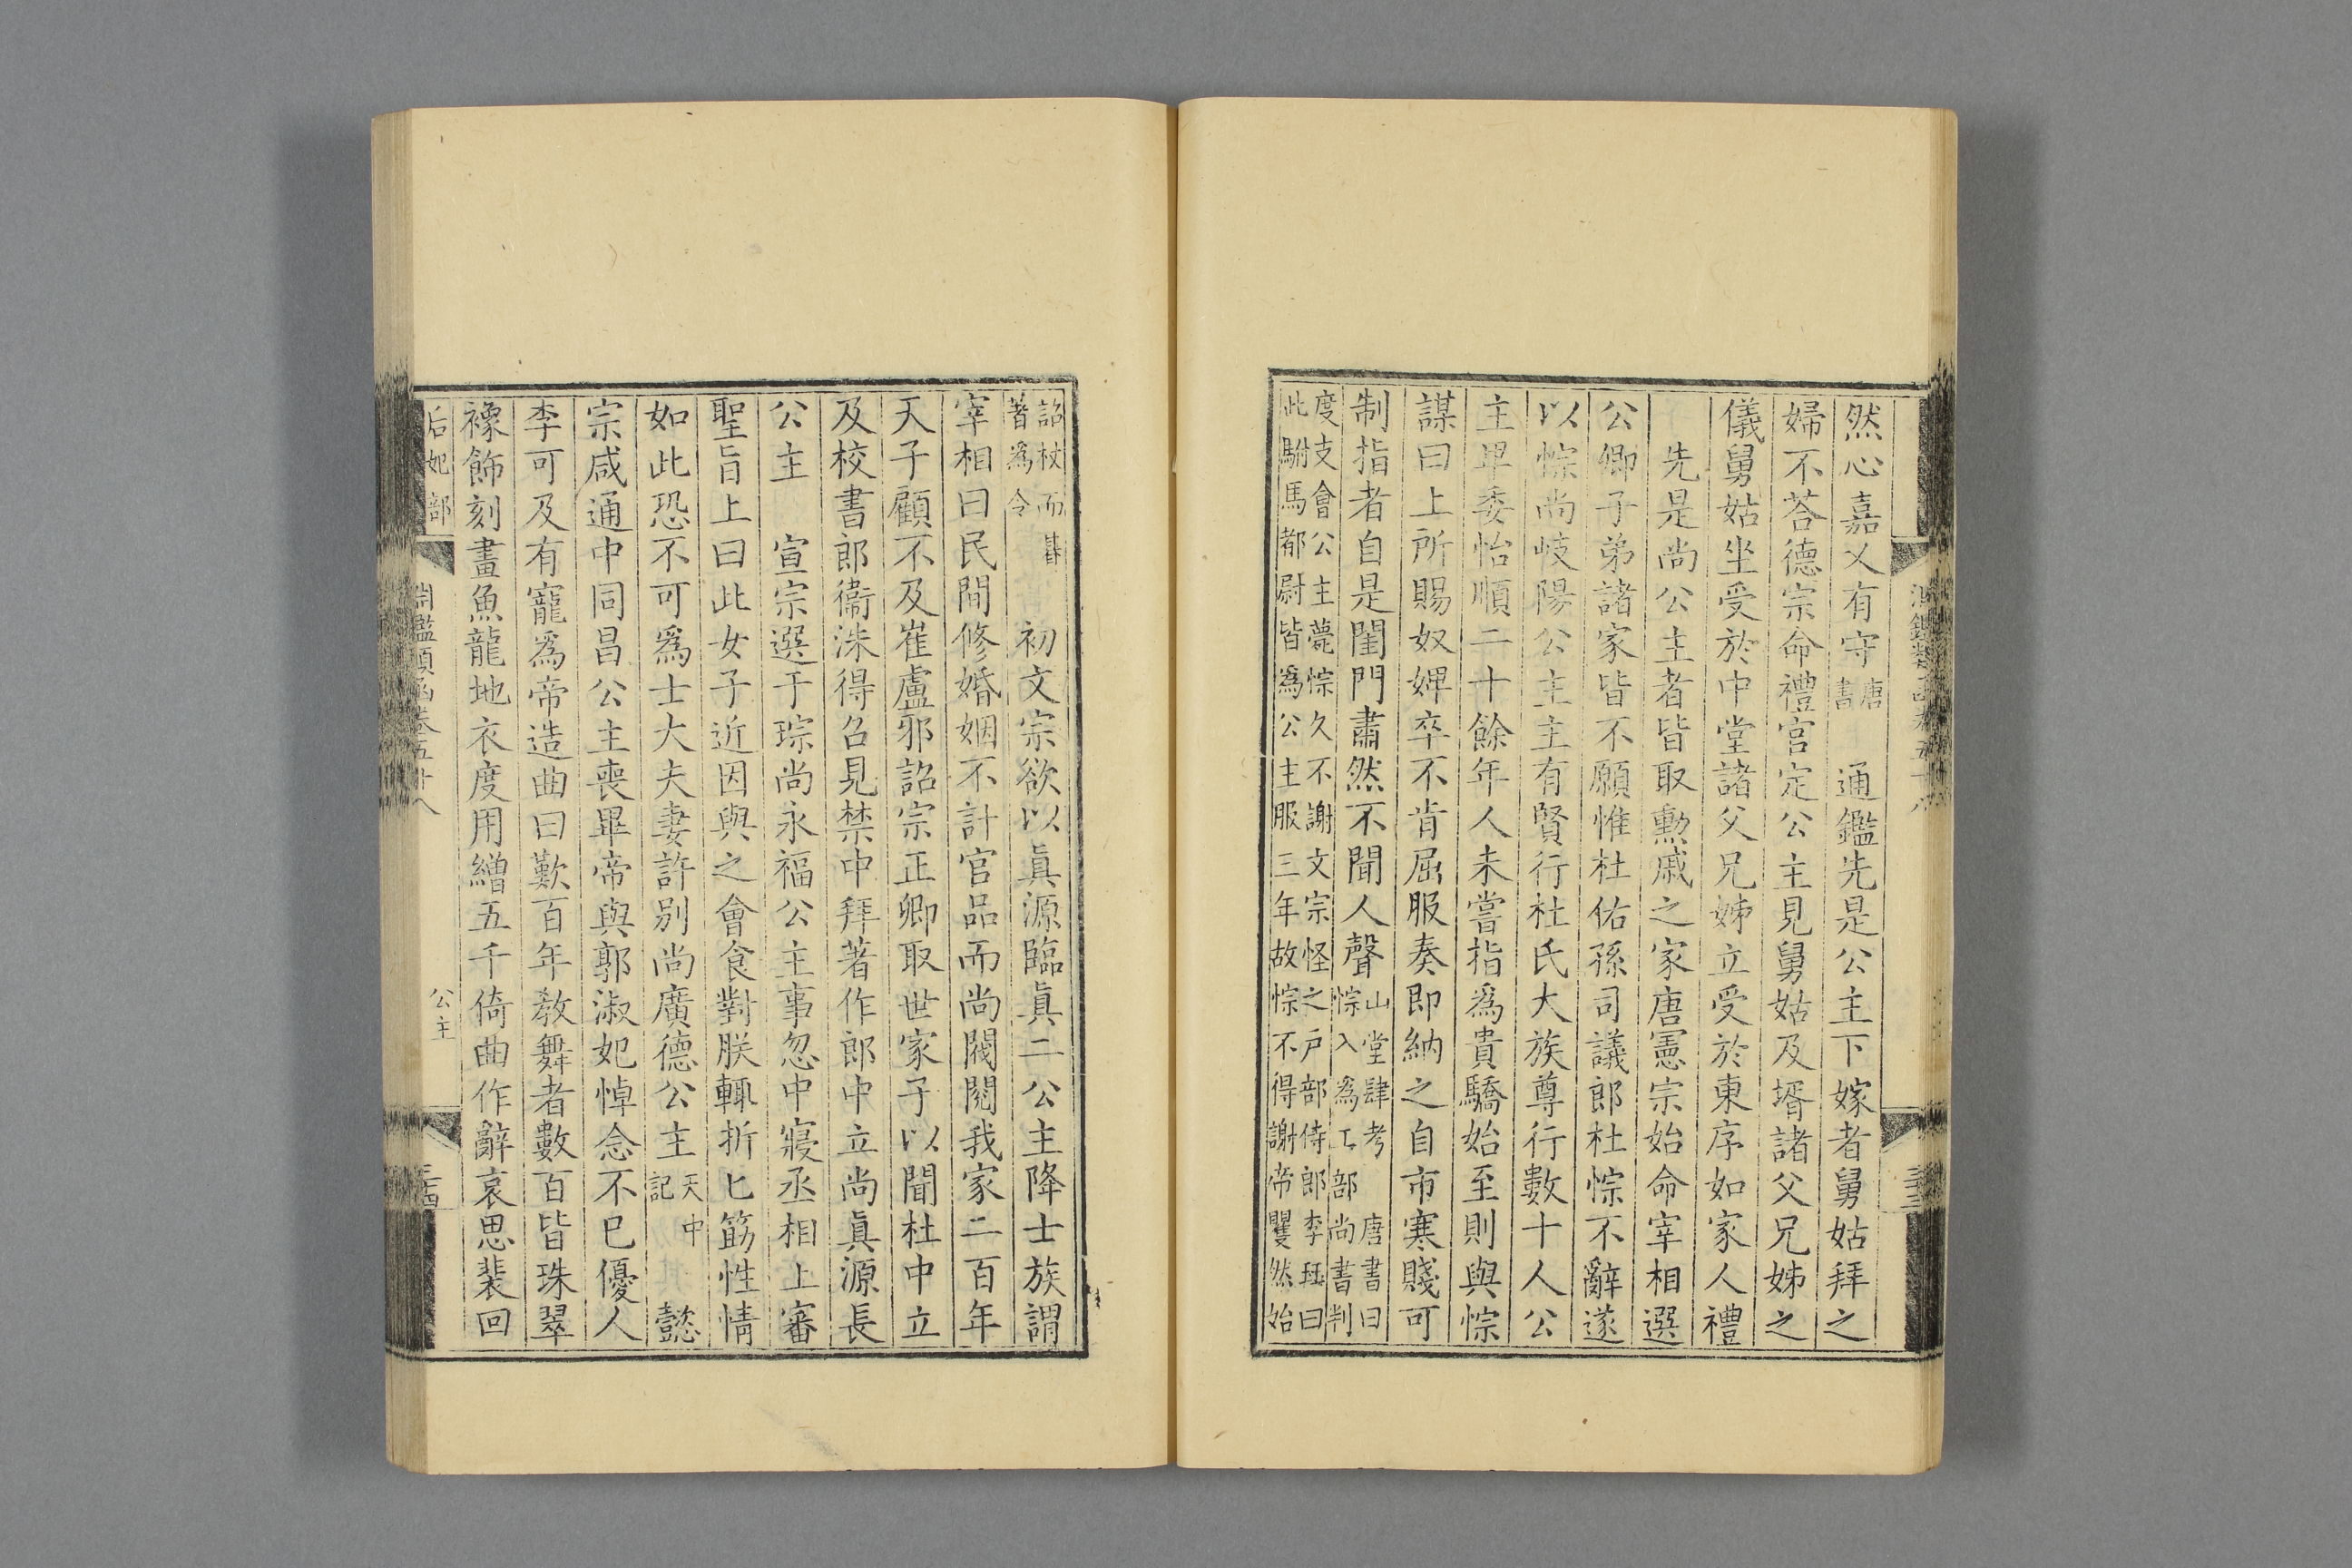 然心嘉乂有守唐書　通鑑先是公主下嫁者舅姑拜之
婦不荅德宗命禮官定公主見舅姑及壻諸父兄姊之
儀舅姑坐受於中堂諸父兄姊立受於東序如家人禮
先是尚公主者皆取勲戚之家唐憲宗始命宰相選
公卿子弟諸家皆不願惟杜佑孫司議郎杜悰不辭遂
以悰尚岐陽公主主有賢行杜氏大族尊行數十人公
主卑委怡順二十餘年人未嘗指爲貴驕始至則與悰
謀曰上所賜奴婢卒不肯屈服奏即納之自市寒賤可
制指者自是閨門肅然不聞人聲山堂肆考　唐書曰
悰入爲工部尚書判
度支會公主薨悰久不謝文宗怪之戶部侍郎李珏曰
此駙馬都尉皆爲公主服三年故悰不得謝帝矍然始
詔杖而朞
著爲令　初文宗欲以眞源臨眞二公主降士族謂
宰相曰民間修婚姻不計官品而尚閥閱我家二百年
天子顧不及崔盧邪詔宗正卿取世家子以聞杜中立
及校書郎衞洙得召見禁中拜著作郎中立尚眞源長
公主　宣宗選于琮尚永福公主事忽中寢丞相上審
聖旨上曰此女子近因與之會食對朕輒折匕筯性情
如此恐不可爲士大夫妻許別尚廣德公主天中記　懿
宗咸通中同昌公主喪畢帝與郭淑妃悼念不已優人
李可及有寵爲帝造曲曰歎百年教舞者數百皆珠翠
襐飾刻畫魚龍地衣度用繒五千倚曲作辭哀思裴回
后妃部
淵鑑類函卷五十八
公主